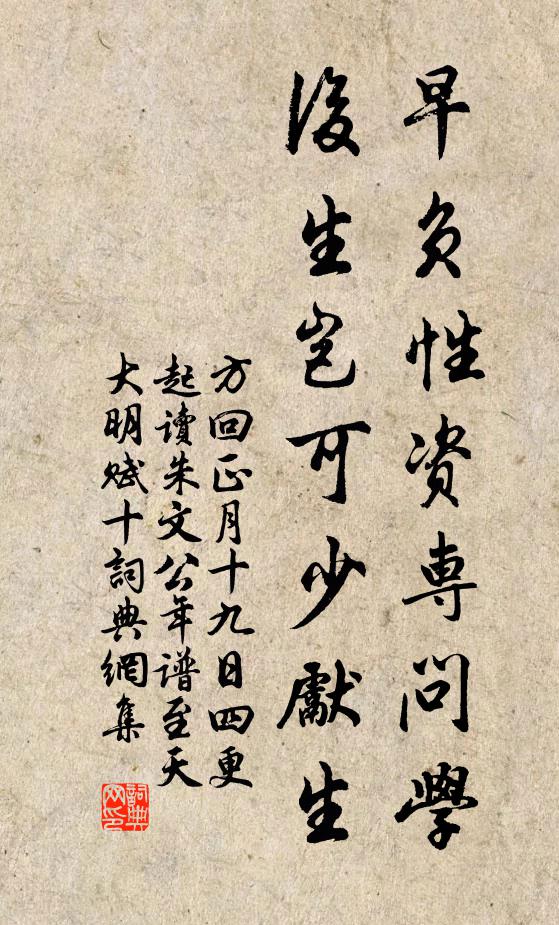 早负性资專問學
後生岂可少獻生
方回正月十九日四更
起讀朱文公年譜至天
大明賦十詞典網集
詞典網印